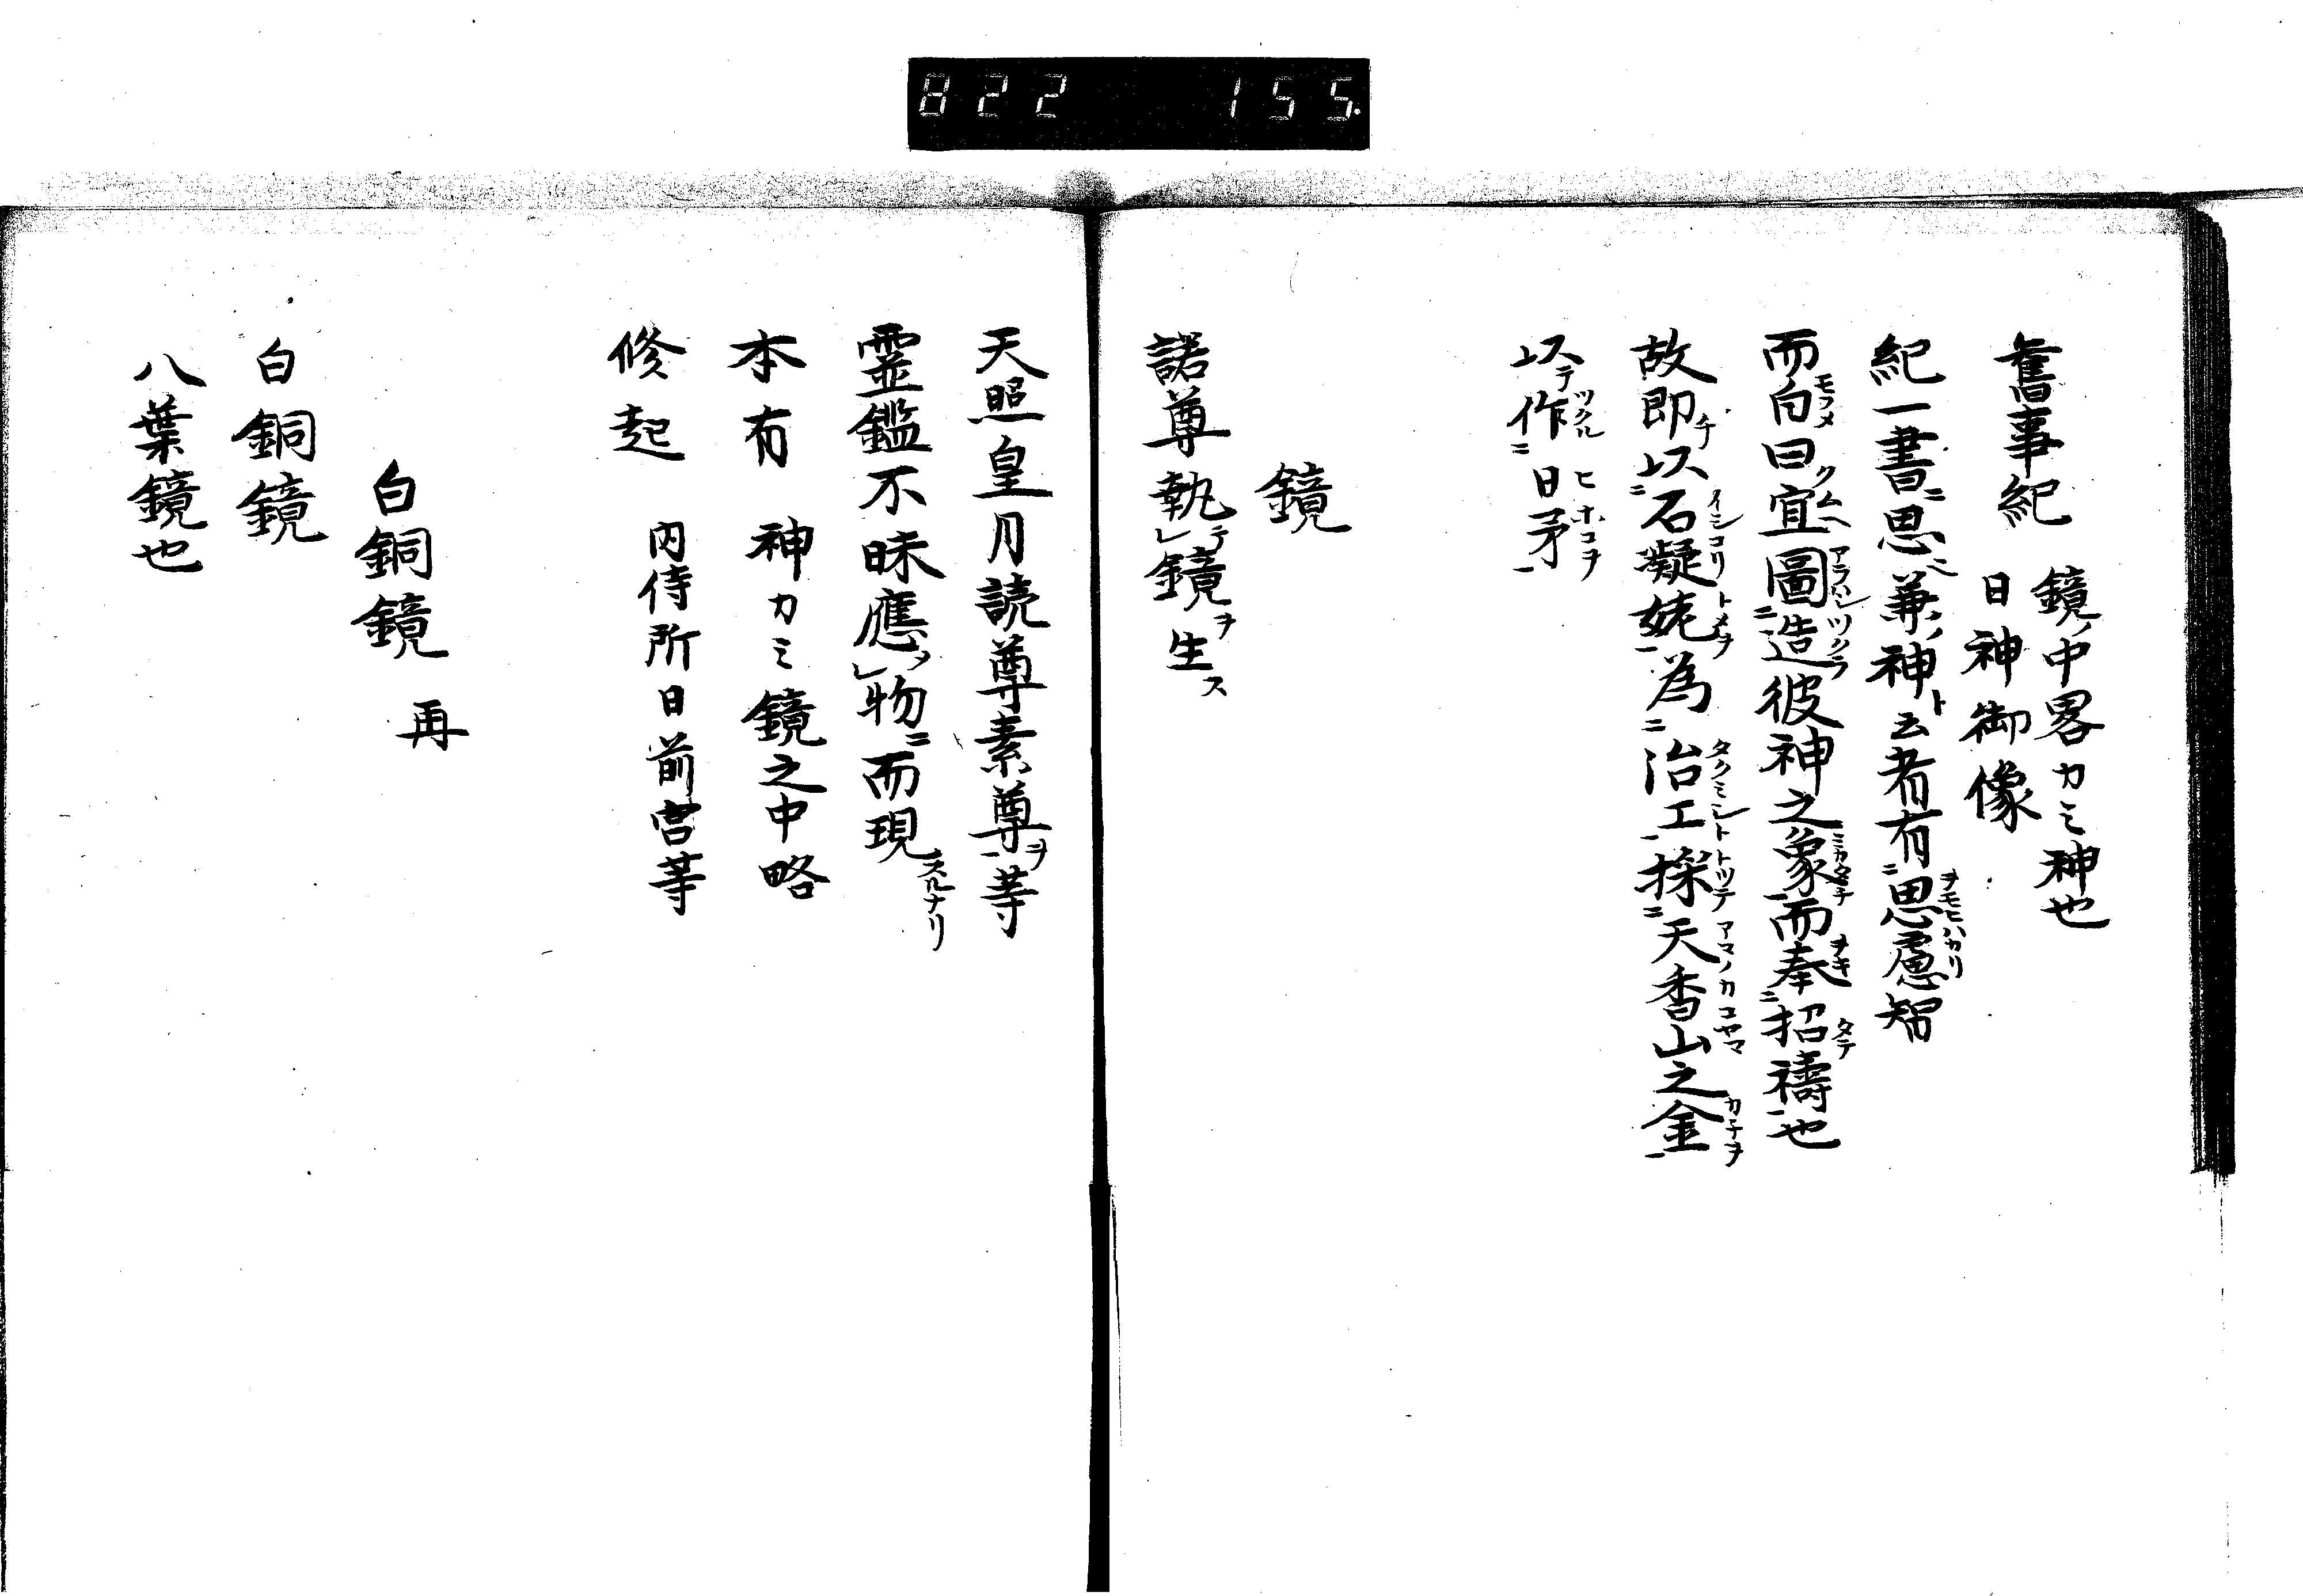 822 155.
舊事紀 鏡ノ中畧カミ神也
日神御像
紀一書ニ思兼ノ神ト云者有思慮智
而白曰宜圖造彼神之象而奉招禱也
故即以石凝姥為冶工採天香山之金
以作日矛
鏡
諾尊執鏡ヲ生ス
天照皇月読尊素尊ヲ等
霊鑑不昧應物而現スルナリ
本有 神カミ鏡之中略
修起 内侍所日前宮等
白銅鏡 再
白銅鏡
八葉鏡也